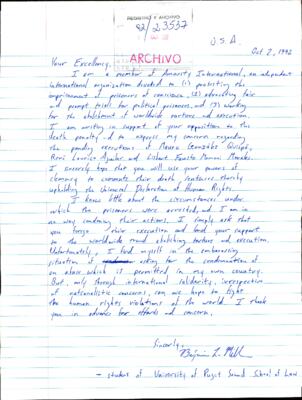 REGISTRO Y ARCHIVO
92/23537
U.S.A.
ARCHIVO
Oct 2, 1992
Your Excellency,
I am a member of Amnesty International, an independent
international organization devoted to (1) protesting the
imprisonment of prisoners of conscience, (2) advocating fair
and prompt trials for political prisoners, and (3) working
for the abolishment of worldwide torture and execution.
I am writing in support of your opposition to the
death penalty and to express my concern regarding
the pending executions of Mauro González Quispe,
René Laurico Aguilar and
I sincerely hope that you will use your powers of
clemency to commute their death sentences thereby
upholding the Universal Declaration of Human Rights.
I know little about the circumstances under
which the prisoners were arrested, and I am in
no way condoning their actions. I simply ask that
you forego their execution and lend your support
to the worldwide trend abolishing torture and execution.
Unfortunately, I find myself in the embarrassing
situation of asking for the condemnation of
an abuse which is permitted in my own country.
But, only through international solidarity, irrespective
of nationalistic concerns, can we hope to fight
the human rights violations of the world. I thank
you in advance for efforts and concern.
Sincerely,
Benjamin L.
- student of University of Puget Sound School of Law